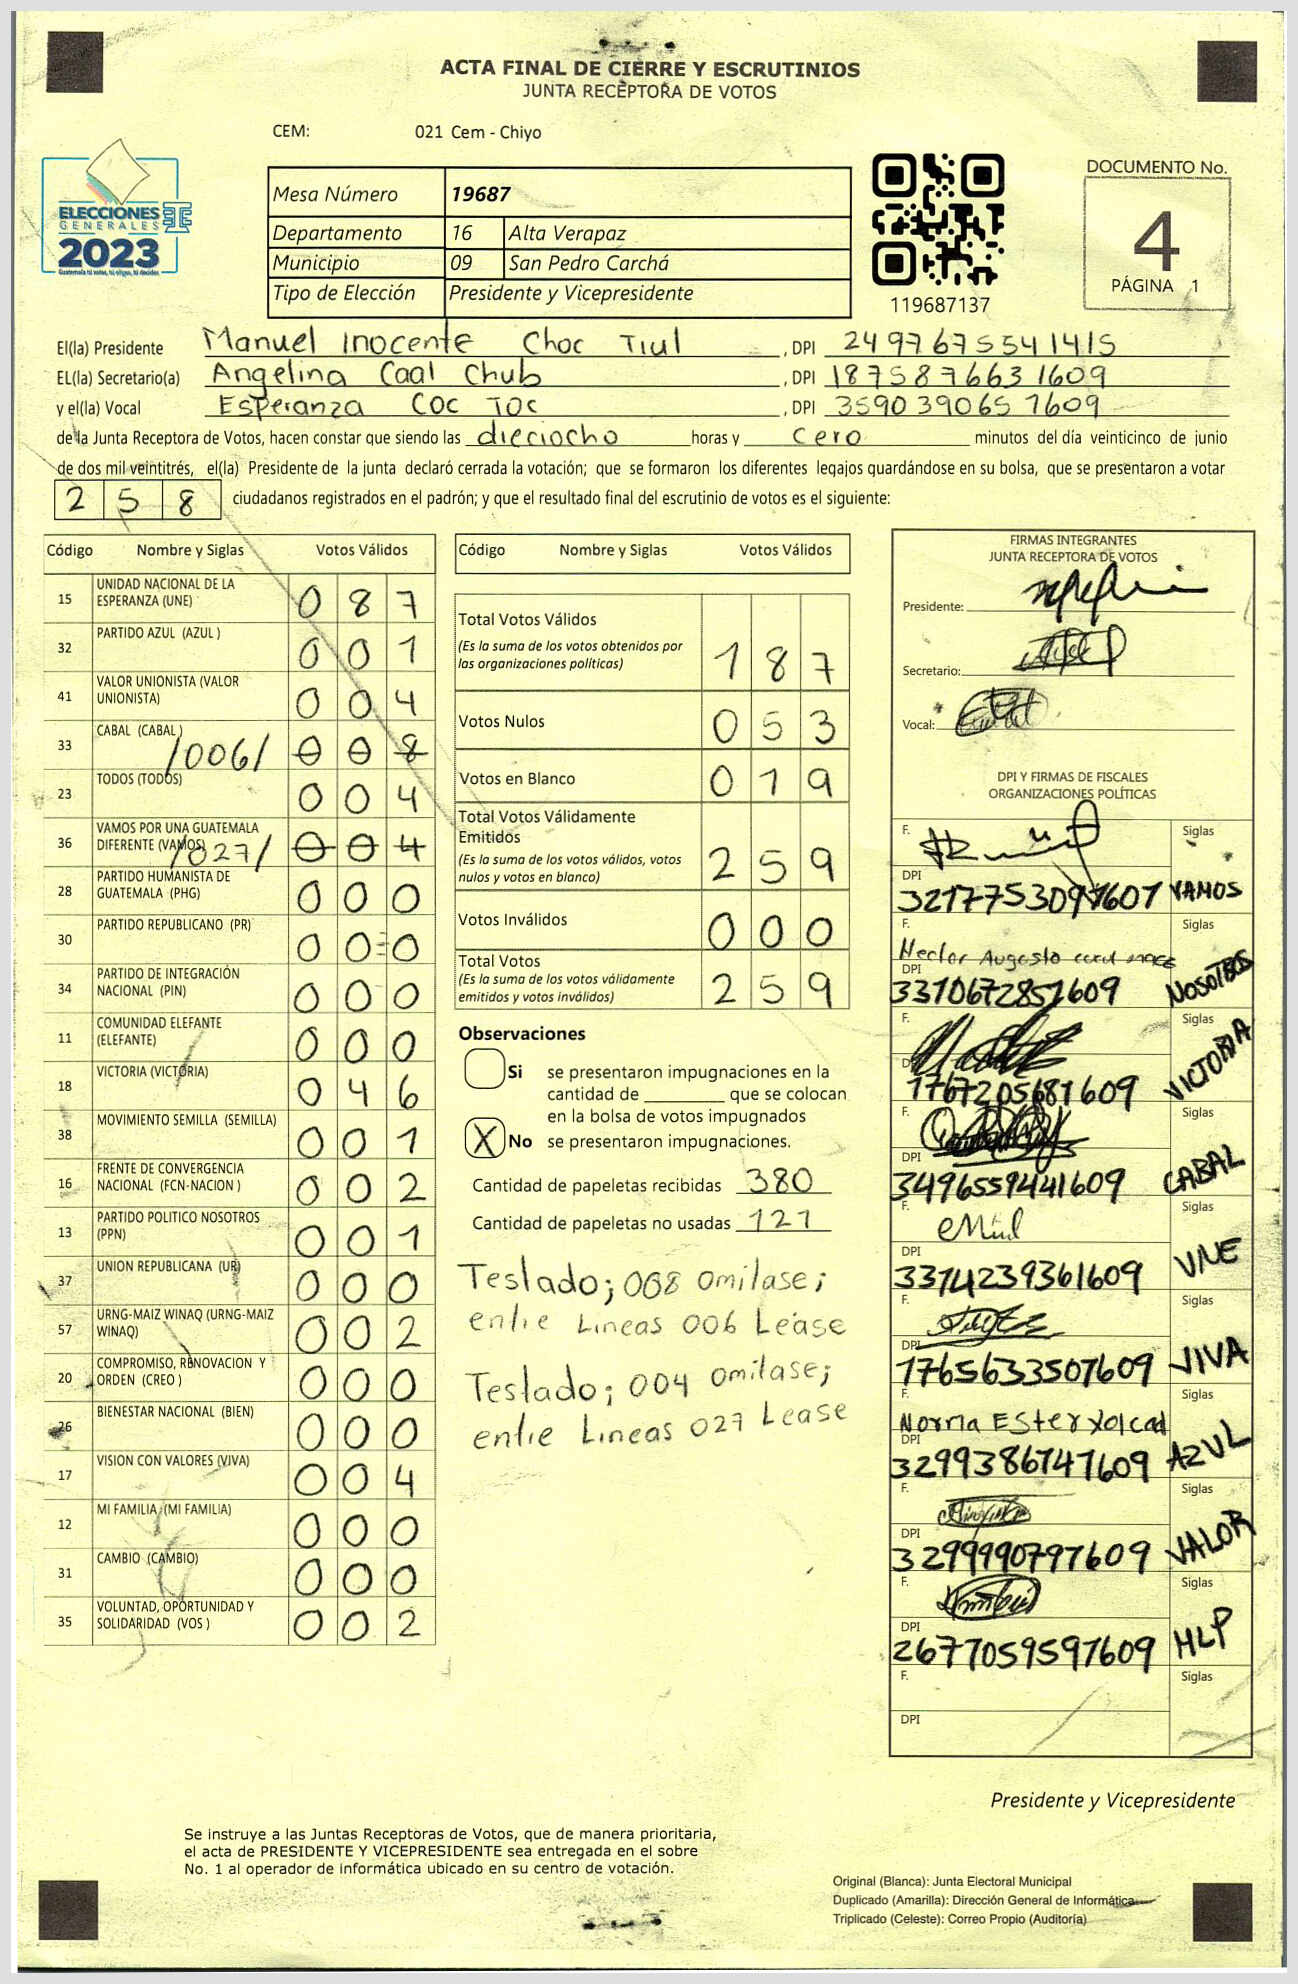 ACTA FINAL DE CIERRE Y ESCRUTINIOS
JUNTA RECEPTORA DE VOTOS
CEM: 021 Cem - Chiyo
ELECCIONES
GENERALES
2023
Guatemala tú votas, tú eliges, tú decides
Mesa Número 19687
Departamento 16 Alta Verapaz
Municipio 09 San Pedro Carchá
Tipo de Elección Presidente y Vicepresidente
119687137
DOCUMENTO No.
4
PÁGINA 1
El(la) Presidente Manuel Inocente Choc Tiul , DPI 2497675541415
EL(la) Secretario(a) Angelina Caal Chub , DPI 1875876631609
y el(la) Vocal Esperanza Coc Toc , DPI 3590390651609
de la Junta Receptora de Votos, hacen constar que siendo las dieciocho horas y cero minutos del día veinticinco de junio
de dos mil veintitrés, el(la) Presidente de la junta declaró cerrada la votación; que se formaron los diferentes legajos guardándose en su bolsa, que se presentaron a votar
258 ciudadanos registrados en el padrón; y que el resultado final del escrutinio de votos es el siguiente:
Código Nombre y Siglas Votos Válidos
15 UNIDAD NACIONAL DE LA ESPERANZA (UNE) 087
32 PARTIDO AZUL (AZUL ) 001
41 VALOR UNIONISTA (VALOR UNIONISTA) 004
33 CABAL (CABAL ) /006/ 008
23 TODOS (TODOS) 004
36 VAMOS POR UNA GUATEMALA DIFERENTE (VAMOS) /027/ 004
28 PARTIDO HUMANISTA DE GUATEMALA (PHG) 000
30 PARTIDO REPUBLICANO (PR) 000
34 PARTIDO DE INTEGRACIÓN NACIONAL (PIN) 000
11 COMUNIDAD ELEFANTE (ELEFANTE) 000
18 VICTORIA (VICTORIA) 046
38 MOVIMIENTO SEMILLA (SEMILLA) 001
16 FRENTE DE CONVERGENCIA NACIONAL (FCN-NACION ) 002
13 PARTIDO POLITICO NOSOTROS (PPN) 001
37 UNION REPUBLICANA (UR) 000
57 URNG-MAIZ WINAQ (URNG-MAIZ WINAQ) 002
20 COMPROMISO, RENOVACION Y ORDEN (CREO ) 000
26 BIENESTAR NACIONAL (BIEN) 000
17 VISION CON VALORES (VIVA) 004
12 MI FAMILIA (MI FAMILIA) 000
31 CAMBIO (CAMBIO) 000
35 VOLUNTAD, OPORTUNIDAD Y SOLIDARIDAD (VOS ) 002
Código Nombre y Siglas Votos Válidos
Total Votos Válidos 187
(Es la suma de los votos obtenidos por
las organizaciones políticas)
Votos Nulos 053
Votos en Blanco 019
Total Votos Válidamente
Emitidos 259
(Es la suma de los votos válidos, votos
nulos y votos en blanco)
Votos Inválidos 000
Total Votos 259
(Es la suma de los votos válidamente
emitidos y votos inválidos)
Observaciones
Si se presentaron impugnaciones en la
cantidad de ________ que se colocan
en la bolsa de votos impugnados
X No se presentaron impugnaciones.
Cantidad de papeletas recibidas 380
Cantidad de papeletas no usadas 121
Teslado; 008 omitase;
entre Lineas 006 Lease
Teslado; 004 omitase;
entre Lineas 027 Lease
FIRMAS INTEGRANTES
JUNTA RECEPTORA DE VOTOS
Presidente:
Secretario:
Vocal:
DPI Y FIRMAS DE FISCALES
ORGANIZACIONES POLÍTICAS
F. Siglas
DPI 3217753091601 VAMOS
F. Hector Augusto Siglas
DPI 3310672851609 NOSOTROS
F. Siglas
DPI 1767205681609 VICTORIA
F. Siglas
DPI 3496559441609 CABAL
F. Siglas
DPI 3314239361609 UNE
F. Siglas
DPI 1765633501609 VIVA
F. Norma Ester Xolcal Siglas
DPI 3299386741609 AZUL
F. Siglas
DPI 3299990791609 VALOR
F. Siglas
DPI 2677059591609 MLP
F. Siglas
DPI
Presidente y Vicepresidente
Se instruye a las Juntas Receptoras de Votos, que de manera prioritaria,
el acta de PRESIDENTE Y VICEPRESIDENTE sea entregada en el sobre
No. 1 al operador de informática ubicado en su centro de votación.
Original (Blanca): Junta Electoral Municipal
Duplicado (Amarilla): Dirección General de Informática
Triplicado (Celeste): Correo Propio (Auditoría)